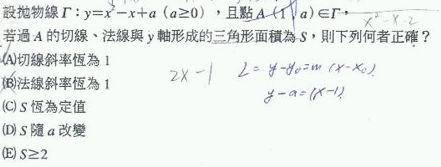 設拋物線 Γ：y=x²−x+a (a≥0)，且點A (1，a)∈Γ，
x²-x-2
若過 A 的切線、法線與 y 軸形成的三角形面積為 S，則下列何者正確？
(A)切線斜率恆為 1
2x-1
L = y-y₀=m(x-x₀)
(B)法線斜率恆為 1
y-a=(x-1)
(C) S 恆為定值
(D) S 隨 a 改變
(E) S≥2